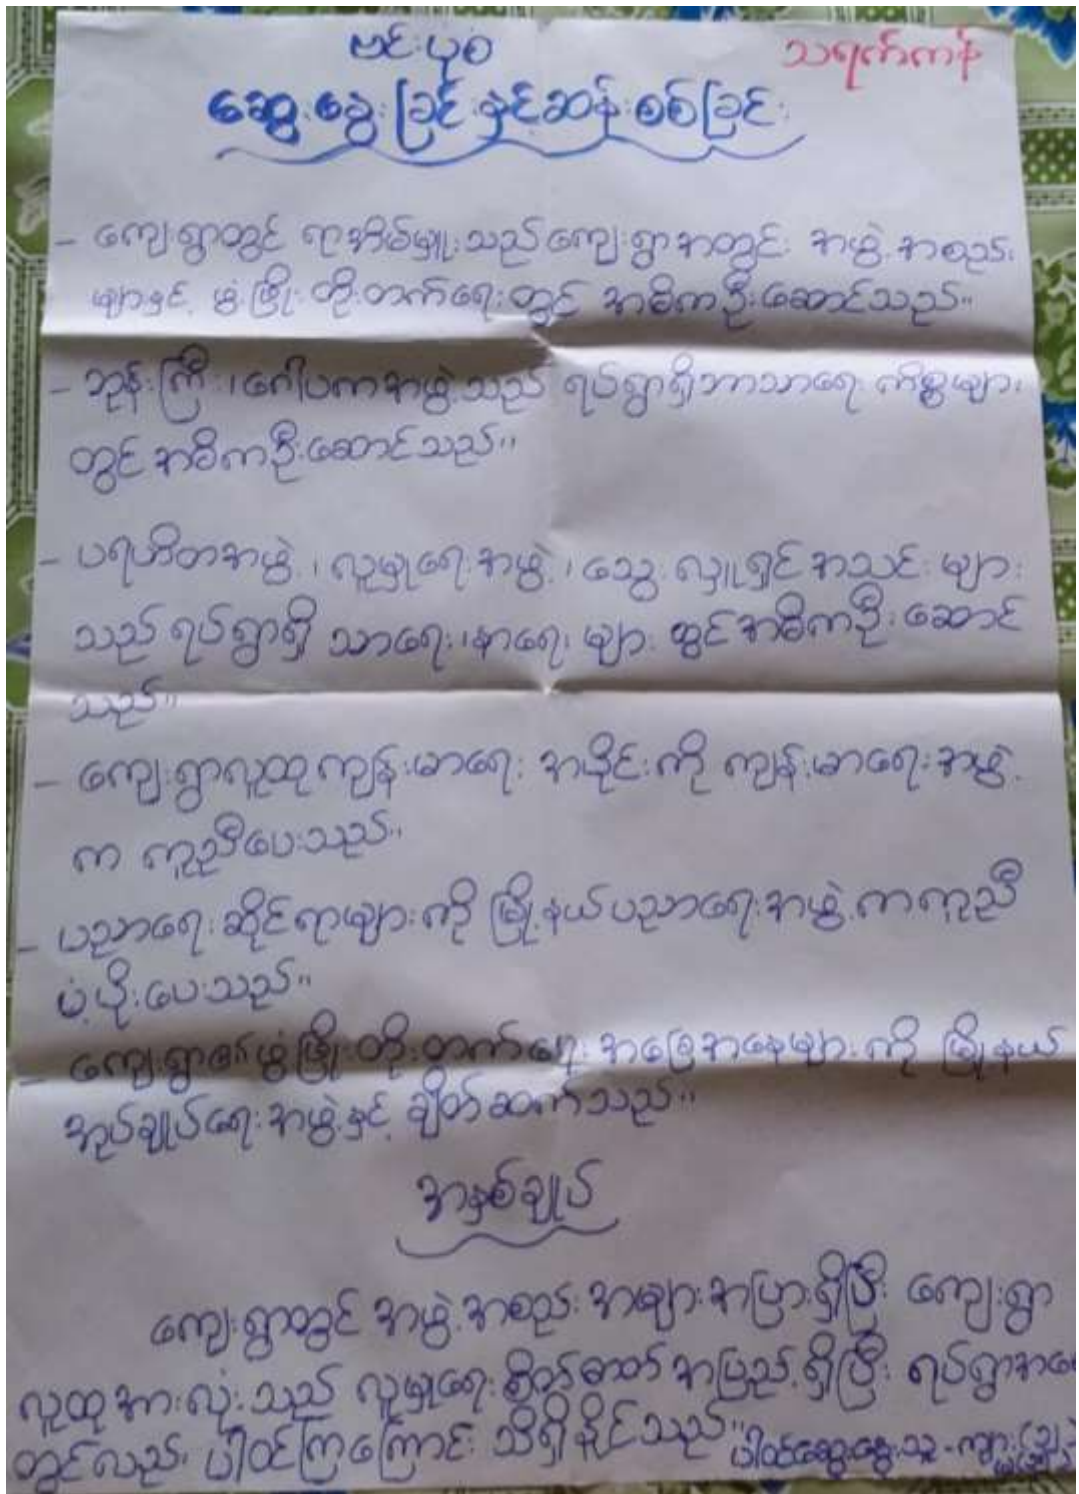 ဗင်းပုံစံ
သရက်ကန်
ဆွေးနွေးခြင်းနှင့်ဆန်းစစ်ခြင်း
- ကျေးရွာတွင် ရာအိမ်မှူးသည် ကျေးရွာအတွင်း အဖွဲ့အစည်း
များနှင့် ဖွံ့ဖြိုးတိုးတက်ရေးတွင် အဓိကဦးဆောင်သည်။
- ဘုန်းကြီး၊ ဂေါပကအဖွဲ့သည် ရပ်ရွာရှိဘာသာရေး ကိစ္စများ
တွင် အဓိကဦးဆောင်သည်။
- ပရဟိတအဖွဲ့၊ လူမှုရေးအဖွဲ့၊ သွေးလှူရှင်အသင်းများ
သည် ရပ်ရွာရှိ သာရေး၊ နာရေးများ တွင်အဓိကဦးဆောင်
သည်။
- ကျေးရွာလူထုကျန်းမာရေး အပိုင်းကို ကျန်းမာရေးအဖွဲ့
က ကူညီပေးသည်။
- ပညာရေးဆိုင်ရာများကို မြို့နယ်ပညာရေးအဖွဲ့ကကူညီ
ပံ့ပိုးပေးသည်။
- ကျေးရွာ၏ဖွံ့ဖြိုးတိုးတက်ရေး အခြေအနေများကို မြို့နယ်
အုပ်ချုပ်ရေးအဖွဲ့နှင့် ချိတ်ဆက်သည်။
အနှစ်ချုပ်
ကျေးရွာတွင် အဖွဲ့အစည်းအများအပြားရှိပြီး ကျေးရွာ
လူထုအားလုံးသည် လူမှုရေးစိတ်ဓာတ်အပြည့်ရှိပြီး
တွင်လည်း ပါဝင်ကြကြောင်း သိရှိနိုင်သည်။
ပါဝင်ဆွေးနွေးသူ - ကျား